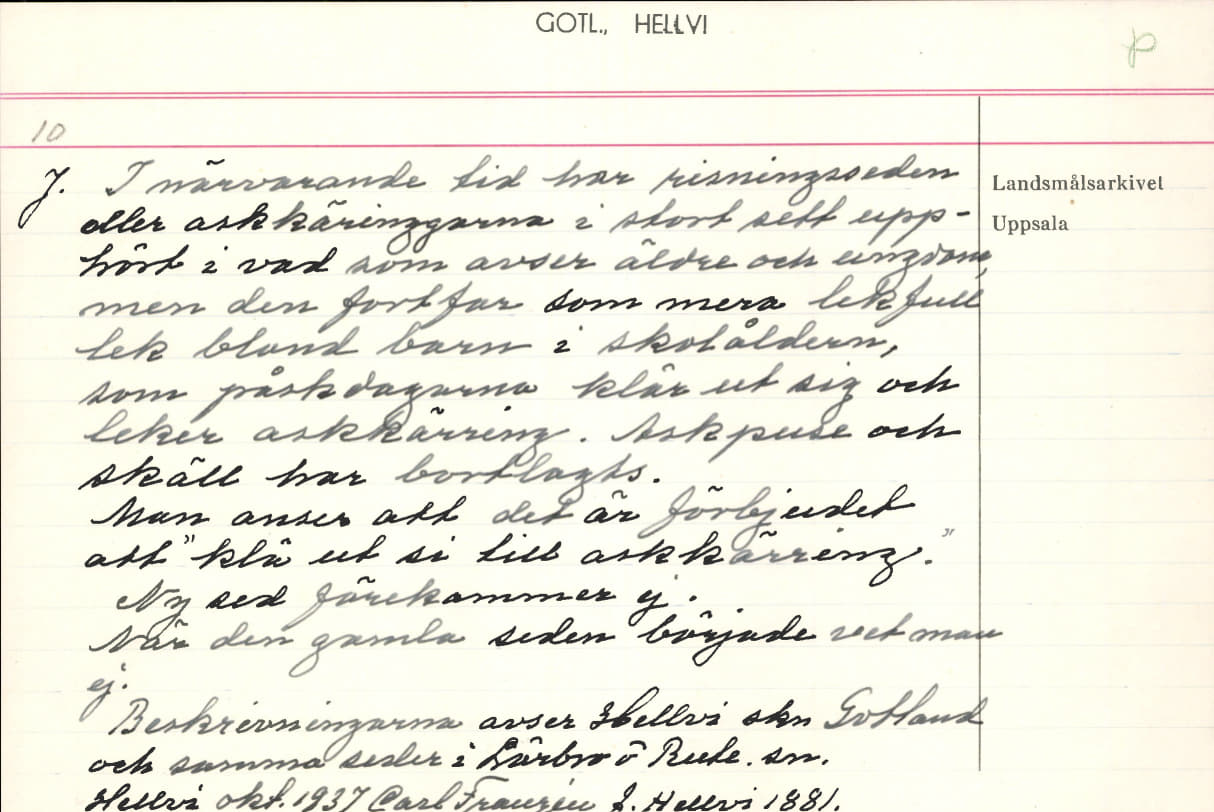 GOTL., HELLVI
p
10
J. I närvarande tid har risningsseden
Landsmålsarkivet
eller askkäringgarna i stort sett upp-
Uppsala
hört i vad som avser äldre och ungdom,
men den fortfar som mera lekfull
lek bland barn i skolåldern,
som påskdagarna klär ut sig och
leker askkärring. Askpuse och
skäll har bortlagts.
Man anser att det är förbjudet
att "klä ut si till askkärring."
Ny sed förekommer ej.
När den gamla seden började vet man
ej.
Beskrivningarna avser Hellvi skn Gotland
och samma seder i Lärbro o Rute. sn.
Hellvi okt. 1937 Carl Franzén f. Hellvi 1881.